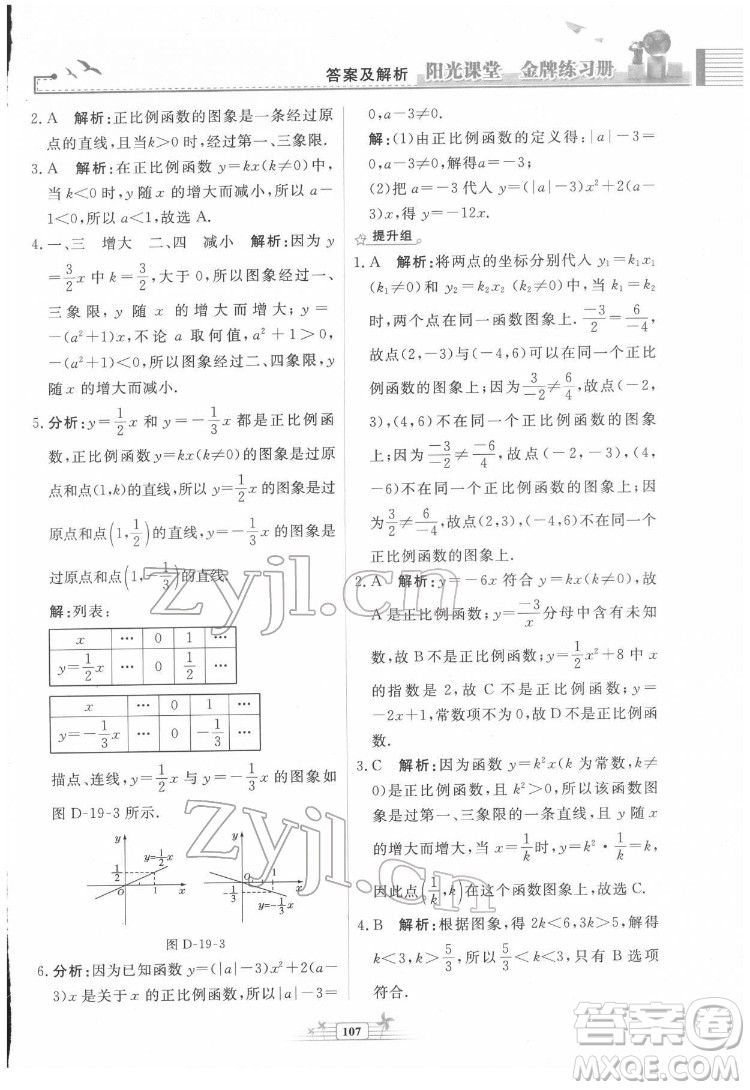 答案及解析 阳光课堂 金牌练习册
2. A 解析:正比例函数的图象是一条经过原
点的直线,且当 k>0 时,经过第一、三象限.
3. A 解析:在正比例函数 y=kx(k≠0)中,
当 k<0 时,y 随 x 的增大而减小,所以 a-
1<0,所以 a<1,故选 A.
4. 一、三 增大 二、四 减小 解析:因为 y
=3/2x 中 k=3/2,大于 0,所以图象经过一、
三象限,y 随 x 的增大而增大;y=
-(a²+1)x,不论 a 取何值,a²+1>0,
-(a²+1)<0,所以图象经过二、四象限,y
随 x 的增大而减小.
5. 分析:y=1/2x 和 y=-1/3x 都是正比例函
数,正比例函数 y=kx(k≠0)的图象是过原
点和点(1,k)的直线,所以 y=1/2x 的图象是过
原点和点(1,1/2)的直线,y=-1/3x 的图象是
过原点和点(1,-1/3)的直线.
解:列表:
x … 0 1 …
y=1/2x … 0 1/2 …
x … 0 1 …
y=-1/3x … 0 -1/3 …
描点、连线,y=1/2x 与 y=-1/3x 的图象如
图 D-19-3 所示.
y y=1/2x 1/2 O 1 x
y O 1 x -1/3 y=-1/3x
图 D-19-3
6. 分析:因为已知函数 y=(|a|-3)x²+2(a-
3)x 是关于 x 的正比例函数,所以|a|-3=
0,a-3≠0.
解:(1)由正比例函数的定义得:|a|-3=
0,a-3≠0,解得 a=-3;
(2)把 a=-3 代入 y=(|a|-3)x²+2(a-
3)x,得 y=-12x.
提升组
1. A 解析:将两点的坐标分别代入 y₁=k₁x₁
(k₁≠0)和 y₂=k₂x₂(k₂≠0)中,当 k₁=k₂
时,两个点在同一函数图象上.-3/2=6/-4,
故点(2,-3),(-4,6)在同一个正比
例函数的图象上;因为3/-2≠6/4,故点(-2,
3),(4,6)不在同一个正比例函数的图象
上;因为-3/-2≠-6/4,故点(-2,-3),(4,
-6)不在同一个正比例函数的图象上;因
为3/2≠6/-4,故点(2,3),(-4,6)不在同一个
正比例函数的图象上.
2. A 解析:y=-6x 符合 y=kx(k≠0),故
A 是正比例函数;y=-3/x 分母中含有未知
数,故 B 不是正比例函数;y=1/2x²+8 中 x
的指数是 2,故 C 不是正比例函数;y=
-2x+1,常数项不为 0,故 D 不是正比例函
数.
3. C 解析:因为函数 y=k²x(k 为常数,k≠
0)是正比例函数,k²>0,所以该函数图
象是过第一、三象限的一条直线,y 随 x
的增大而增大,当 x=1/k时,y=k²·1/k=k,
因此点(1/k,k)在这个函数图象上,故选 C.
4. B 解析:根据图象,得 2k<6,3k>5,解得
k<3,k>5/3,所以5/3<k<3,只有 B 选项
符合.
107
Zyjl.cn
Zyjl.cn
答案圈
MXQE.COM